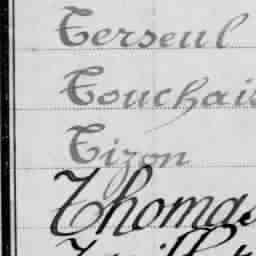 Terseul
Touchais
Tizon
Thomas